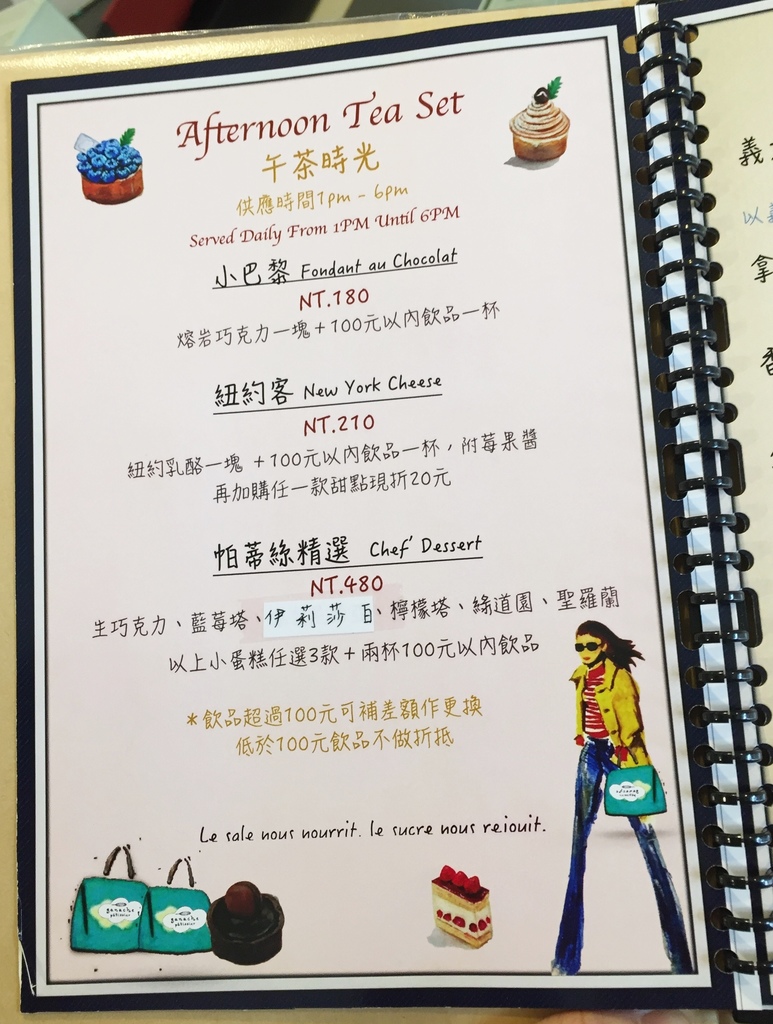 Afternoon Tea Set
午茶時光
供應時間1pm - 6pm
Served Daily From 1PM Until 6PM
小巴黎 Fondant au Chocolat
NT.180
熔岩巧克力一塊+100元以內飲品一杯
紐約客 New York Cheese
NT.210
紐約乳酪一塊 +100元以內飲品一杯,附莓果醬
再加購任一款甜點現折20元
帕蒂絲精選 Chef' Dessert
NT.480
生巧克力、藍莓塔、伊莉莎白、檸檬塔、綠道園、聖羅蘭
以上小蛋糕任選3款+兩杯100元以內飲品
*飲品超過100元可補差額作更換
低於100元飲品不做折抵
Le sale nous nourrit. le sucre nous rejouit.
ganache
patissier
ganache
patissier
義
以
拿